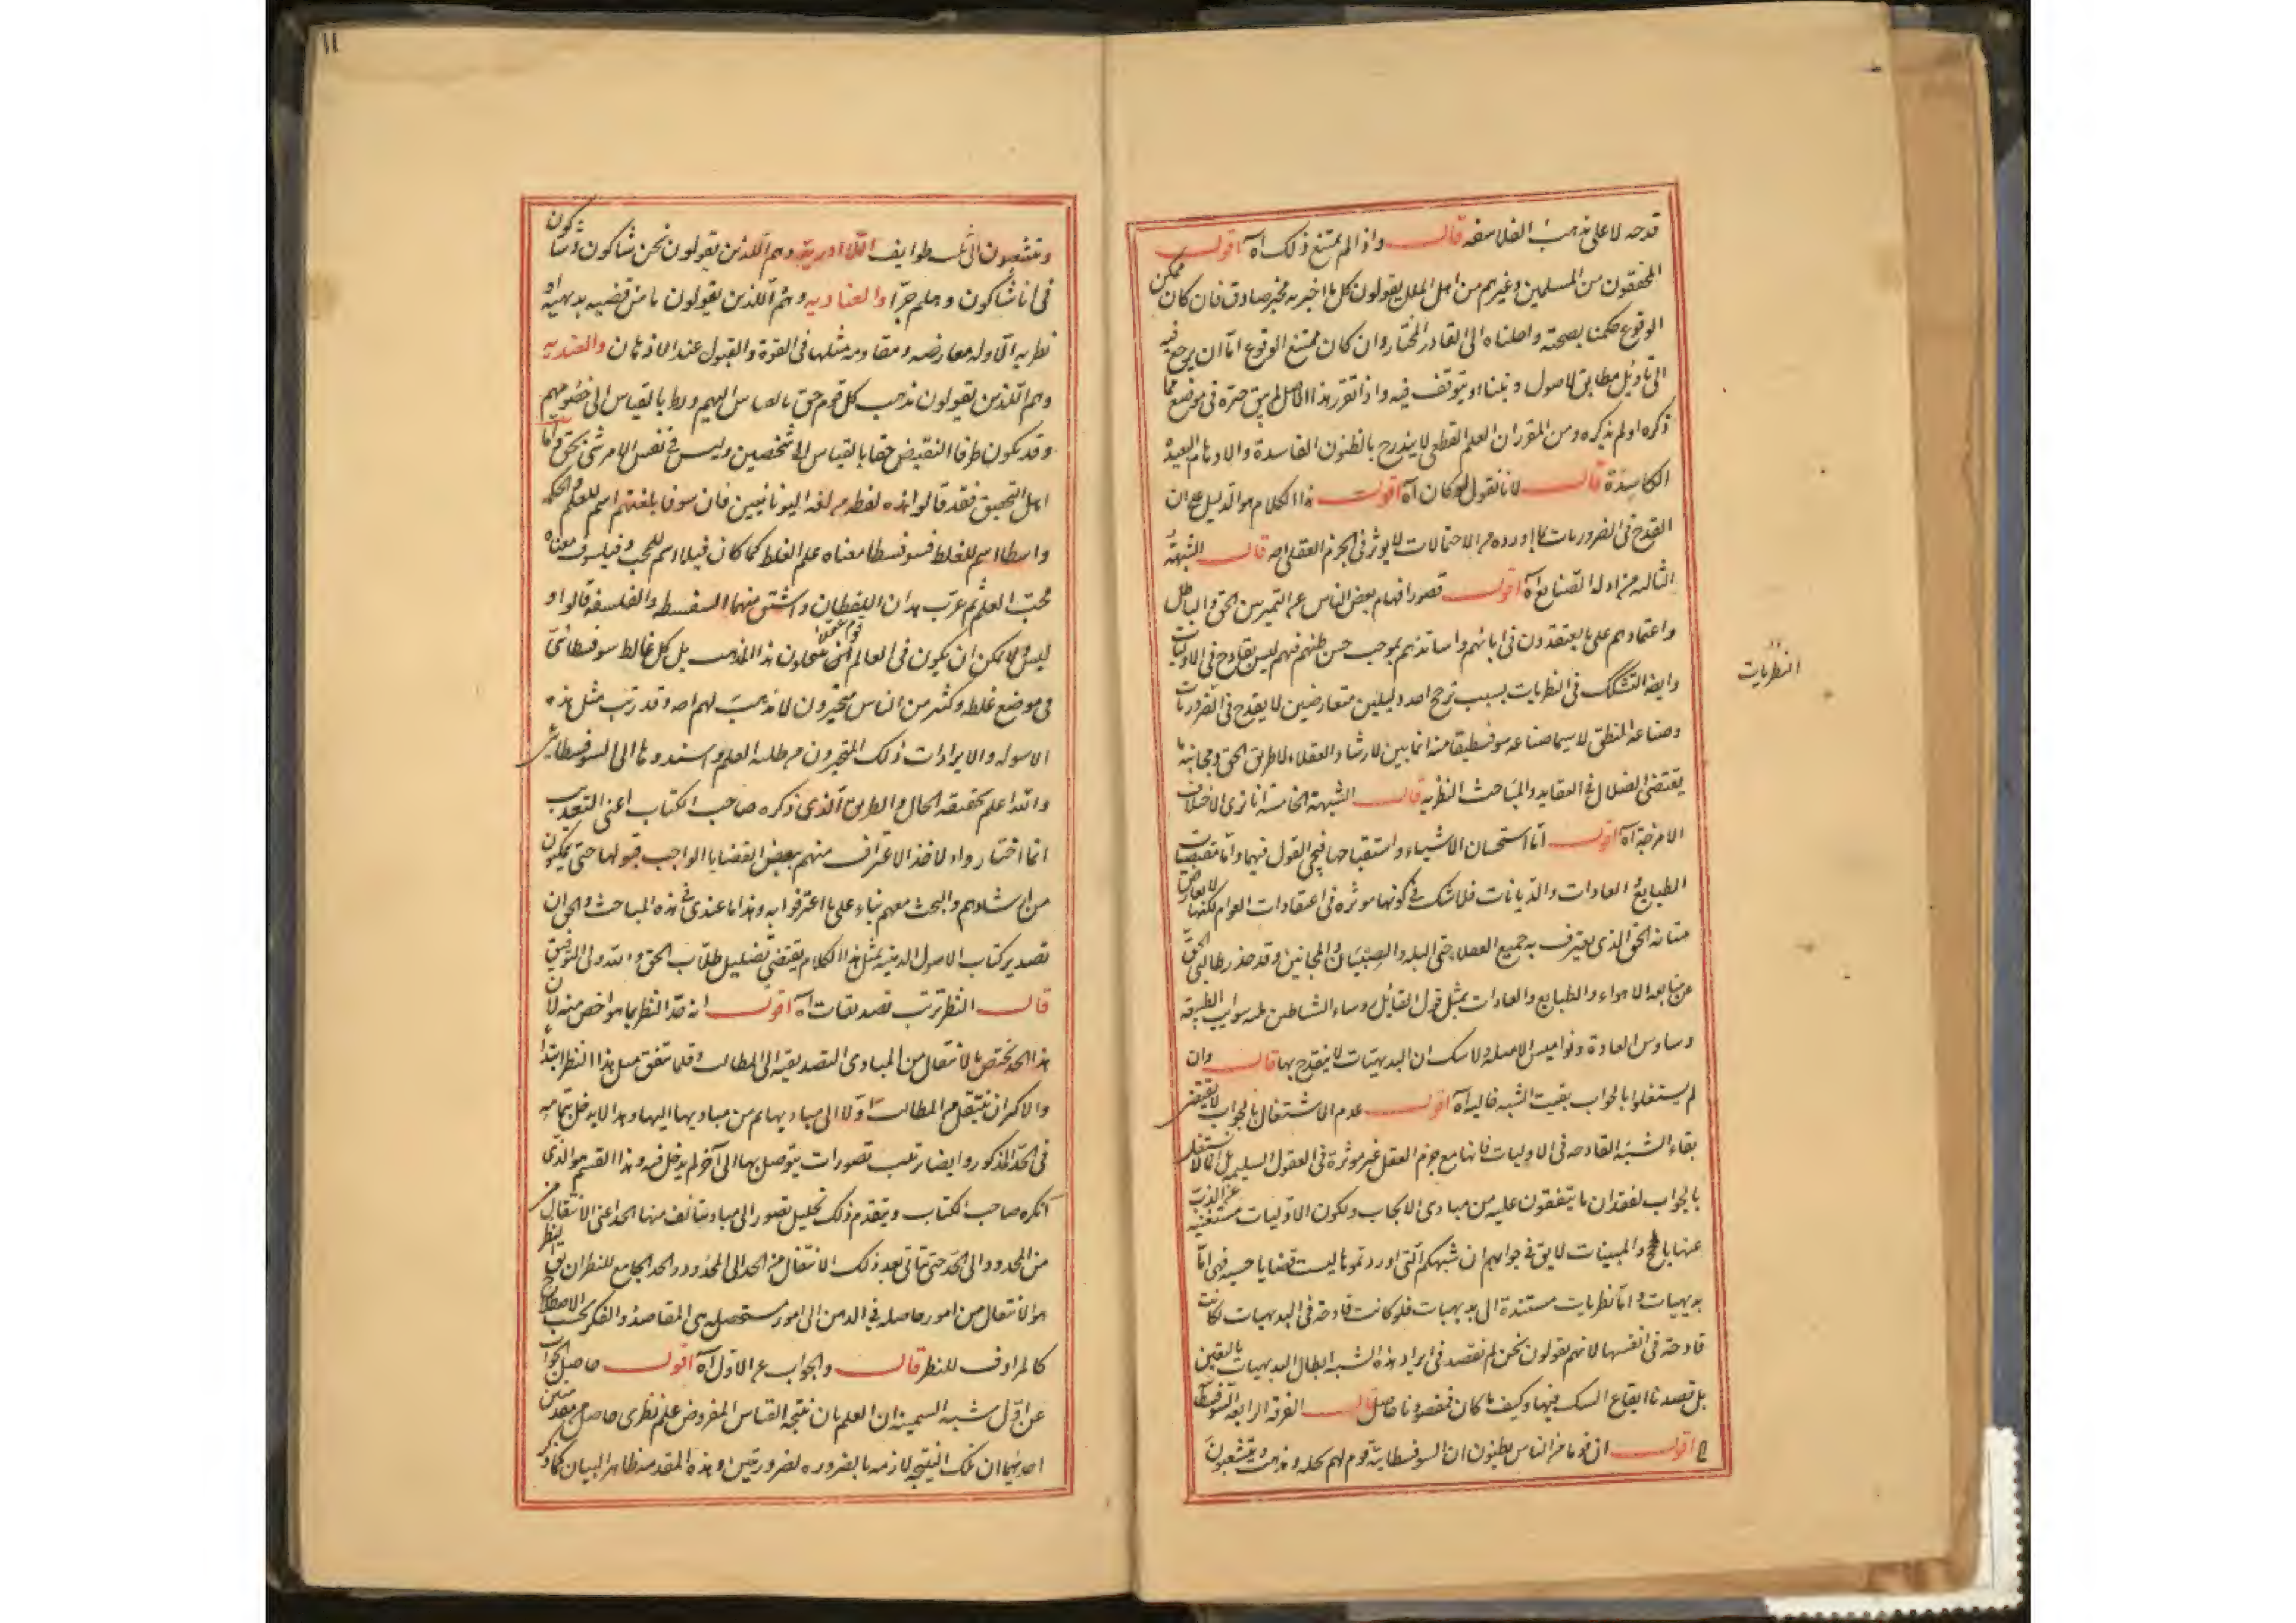 قدحه لا على مذهب الفلاسفه قال واذا لم يمتنع ذلك اه اقول
المحققون من المسلمين وغيرهم من اهل الملل يقولون كل ما اخبر به مخبر صادق فان كان ممكن
الوقوع حكمنا بصحته واحلناه الى القادر المختار وان كان ممتنع الوقوع امّا ان يرجع فيه
الى تاويل مطابق لاصول ديننا او يتوقف فيه واذا تقرر هذا الاصل لم يبق حيرة فى موضع مما
ذكره او لم يذكره ومن المقرر ان العلم القطعى لا يندرج بالظنون الفاسدة والاوهام البعيدة
الكاسِدَة قال لانا نقول لو كان آه اقول هذا الكلام هو الدليل على ان
القدح فى الضروريات كما اورده من الاحتمالات لا يوثر فى الجزم العقلى اصه قال الشبهة
الثالثه مزاوله الصنايع آه اقول قصور افهام بعض الناس عن التميز بين الحق والباطل
واعتمادهم على ما يعتقدون فى ابائهم واساتذتهم بموجب حسن ظنهم فيهم ليس بقادح فى الاوليات
وايضا التشكك فى النظريات بسبب ترجح احد دليلين متعارضين لا يقدح فى الضروريات
وصناعة المنطق لا سيما صناعه سوفسطيقا منه انما بيّن لارشاد العقلاء لطريق الحق ومجانبة ما
يقتضى الضلال فى العقايد والمباحث النظريه قال الشبهة الخامسة انا نرى الاختلاف
الامزجة آه اقول امّا استحسان الاشياء واستقباحها فيجى القول فيهما وامّا مقتضيات
الطبايع والعادات والديانات فلا شك فى كونها موثره فى اعتقادات العوام لكنها لا يعارض
متانه الحق الذى يعترف به جميع العقلا حتى البله والصبيان والمجانين وقد حذر طالبى الحق
عن متابعه الاهواء والطبايع والعادات بمثل قول القائل روساء الشياطين ثلثه سوايب الطبيعة
وساوس العادة ونواميس الامثله ولا شك ان البديهيّات لا ينقدح بها قال وان
لم يشتغلوا بالجواب بقيت الشبه خاليه آه اقول عدم الاشتغال بالجواب لا يقتضى
بقاء الشبه القادحه فى الاوليات فانها مع جزم العقل غير موثرة فى العقول السليمه بل انما لا نشتغل
بالجواب لفقدان ما يتفقون عليه من مبادى الابحاث ولكون الاوليات مستغنيه عن الذب
عنها بالحجج والمبينات لا يق فى جوابهم ان شبهكم التى اوردتموها ليست قضايا حسيه فهى امّا
بديهيات وامّا نظريات مستندة الى بديهيات فلو كانت قادحة فى البديهيات لكانت
قادحة فى انفسها لانهم يقولون نحن لم نقصد فى ايراد هذه الشبه ابطال البديهيات باليقين
بل قصدنا ايقاع الشك فيها وكيف ما كان فمقصودنا حاصل قال الفرقه الرابعه السوفسطا
اقول ان قوما من الناس يظنون ان السوفسطاييه قوم لهم نحله ومذهب ويتشعبون
النظريات
١١
ويتشعبون الى ثلث طوايف اللا ادرية وهم اللذين يقولون نحن شاكون وشاكون
فى انا شاكون وهلم جرّا والعناديه وهم اللذين يقولون ما من قضيه بديهيه او
نظريه الّا وله معارضه ومقاومه مثلها فى القوة والقبول عند الاذهان والعنديه
وهم اللذين يقولون مذهب كل قوم حق بالقياس اليهم وباطل بالقياس الى خصومهم
وقد يكون طرفا النقيض حقا بالقياس الى شخصين وليس فى نفس الامر شى بحق واما
اهل التحقيق فقد قالوا هذه لفظه من لغه اليونانيين فان سوفا بلغتهم اسم للعلم والحكمه
واسطا اسم للغلط فسوفسطا معناه علم الغلط كما كان فيلا اسم للمحب وفيلسوف معناه
محبّ العلم ثم عرّب هذان اللفظان واشتق منهما السفسطه والفلسفه قالوا و
ليس ولا يمكن ان يكون فى العالم قوم عقلاء ينتحلون هذا المذهب بل كل غالط سوفسطائى
فى موضع غلطه وكثير من الناس متحيّرون لا مذهب لهم اصه وقد رتب مثل هذه
الاسوله والايرادات ذلك المتحيرون من طلبه العلم واسندوها الى السوفسطاييه
والله اعلم بحقيقه الحال والطريق الذى ذكره صاحب الكتاب اعنى التعذيب
انما اختار واد لاخذ الاعتراف منهم ببعض القضايا الواجب قبولها حتى يمكن
من ارشادهم والبحث معهم بناء على ما اعترفوا به وهذا ما عندى فى هذه المباحث والحق ان
تصدير كتاب الاصول الدينيه بمثل هذا الكلام يقتضى تضليل طلّاب الحق والله ولى التوفيق
قال النظر ترتب تصديقات آه اقول انه حدّ النظر بما هو اخص منه لان
هذا الحد يختص بالانتقال من المبادى التصديقيه الى المطالب وقلما يتفق مثل هذا النظر ابتداء
والاكثر ان ينتقل من المطالب اوّلا الى مباديها ثم من مباديها اليها وهذا لا يدخل بتمامه
فى الحدّ المذكور وايضا ترتيب تصورات يتوصل بها الى آخر لم يدخل فيه وهذا القسم هو الذى
انكره صاحب الكتاب ويتقدم ذلك تحليل تصور الى مباد يتالف منها الحد اعنى الانتقال
من المحدود الى الحدّ حتى يتاتى بعد ذلك الانتقال من الحد الى المحدود والحد الجامع للنظر ان يق النظر
هو الانتقال من امور حاصله فى الذهن الى امور مستحصله هى المقاصد والفكر بحسب الاصطلاح
كالمرادف للنظر قال والجواب عن الاوّل آه اقول حاصل الجواب
عن اوّل شبه السمنيه ان العلم بان نتيجة القياس المفروض علم نظرى حاصل من مقدمتين
احديهما ان تلك النتيجه لازمه بالضروره لضروريتين وهذه المقدمه ظاهر البيان كما ذكر